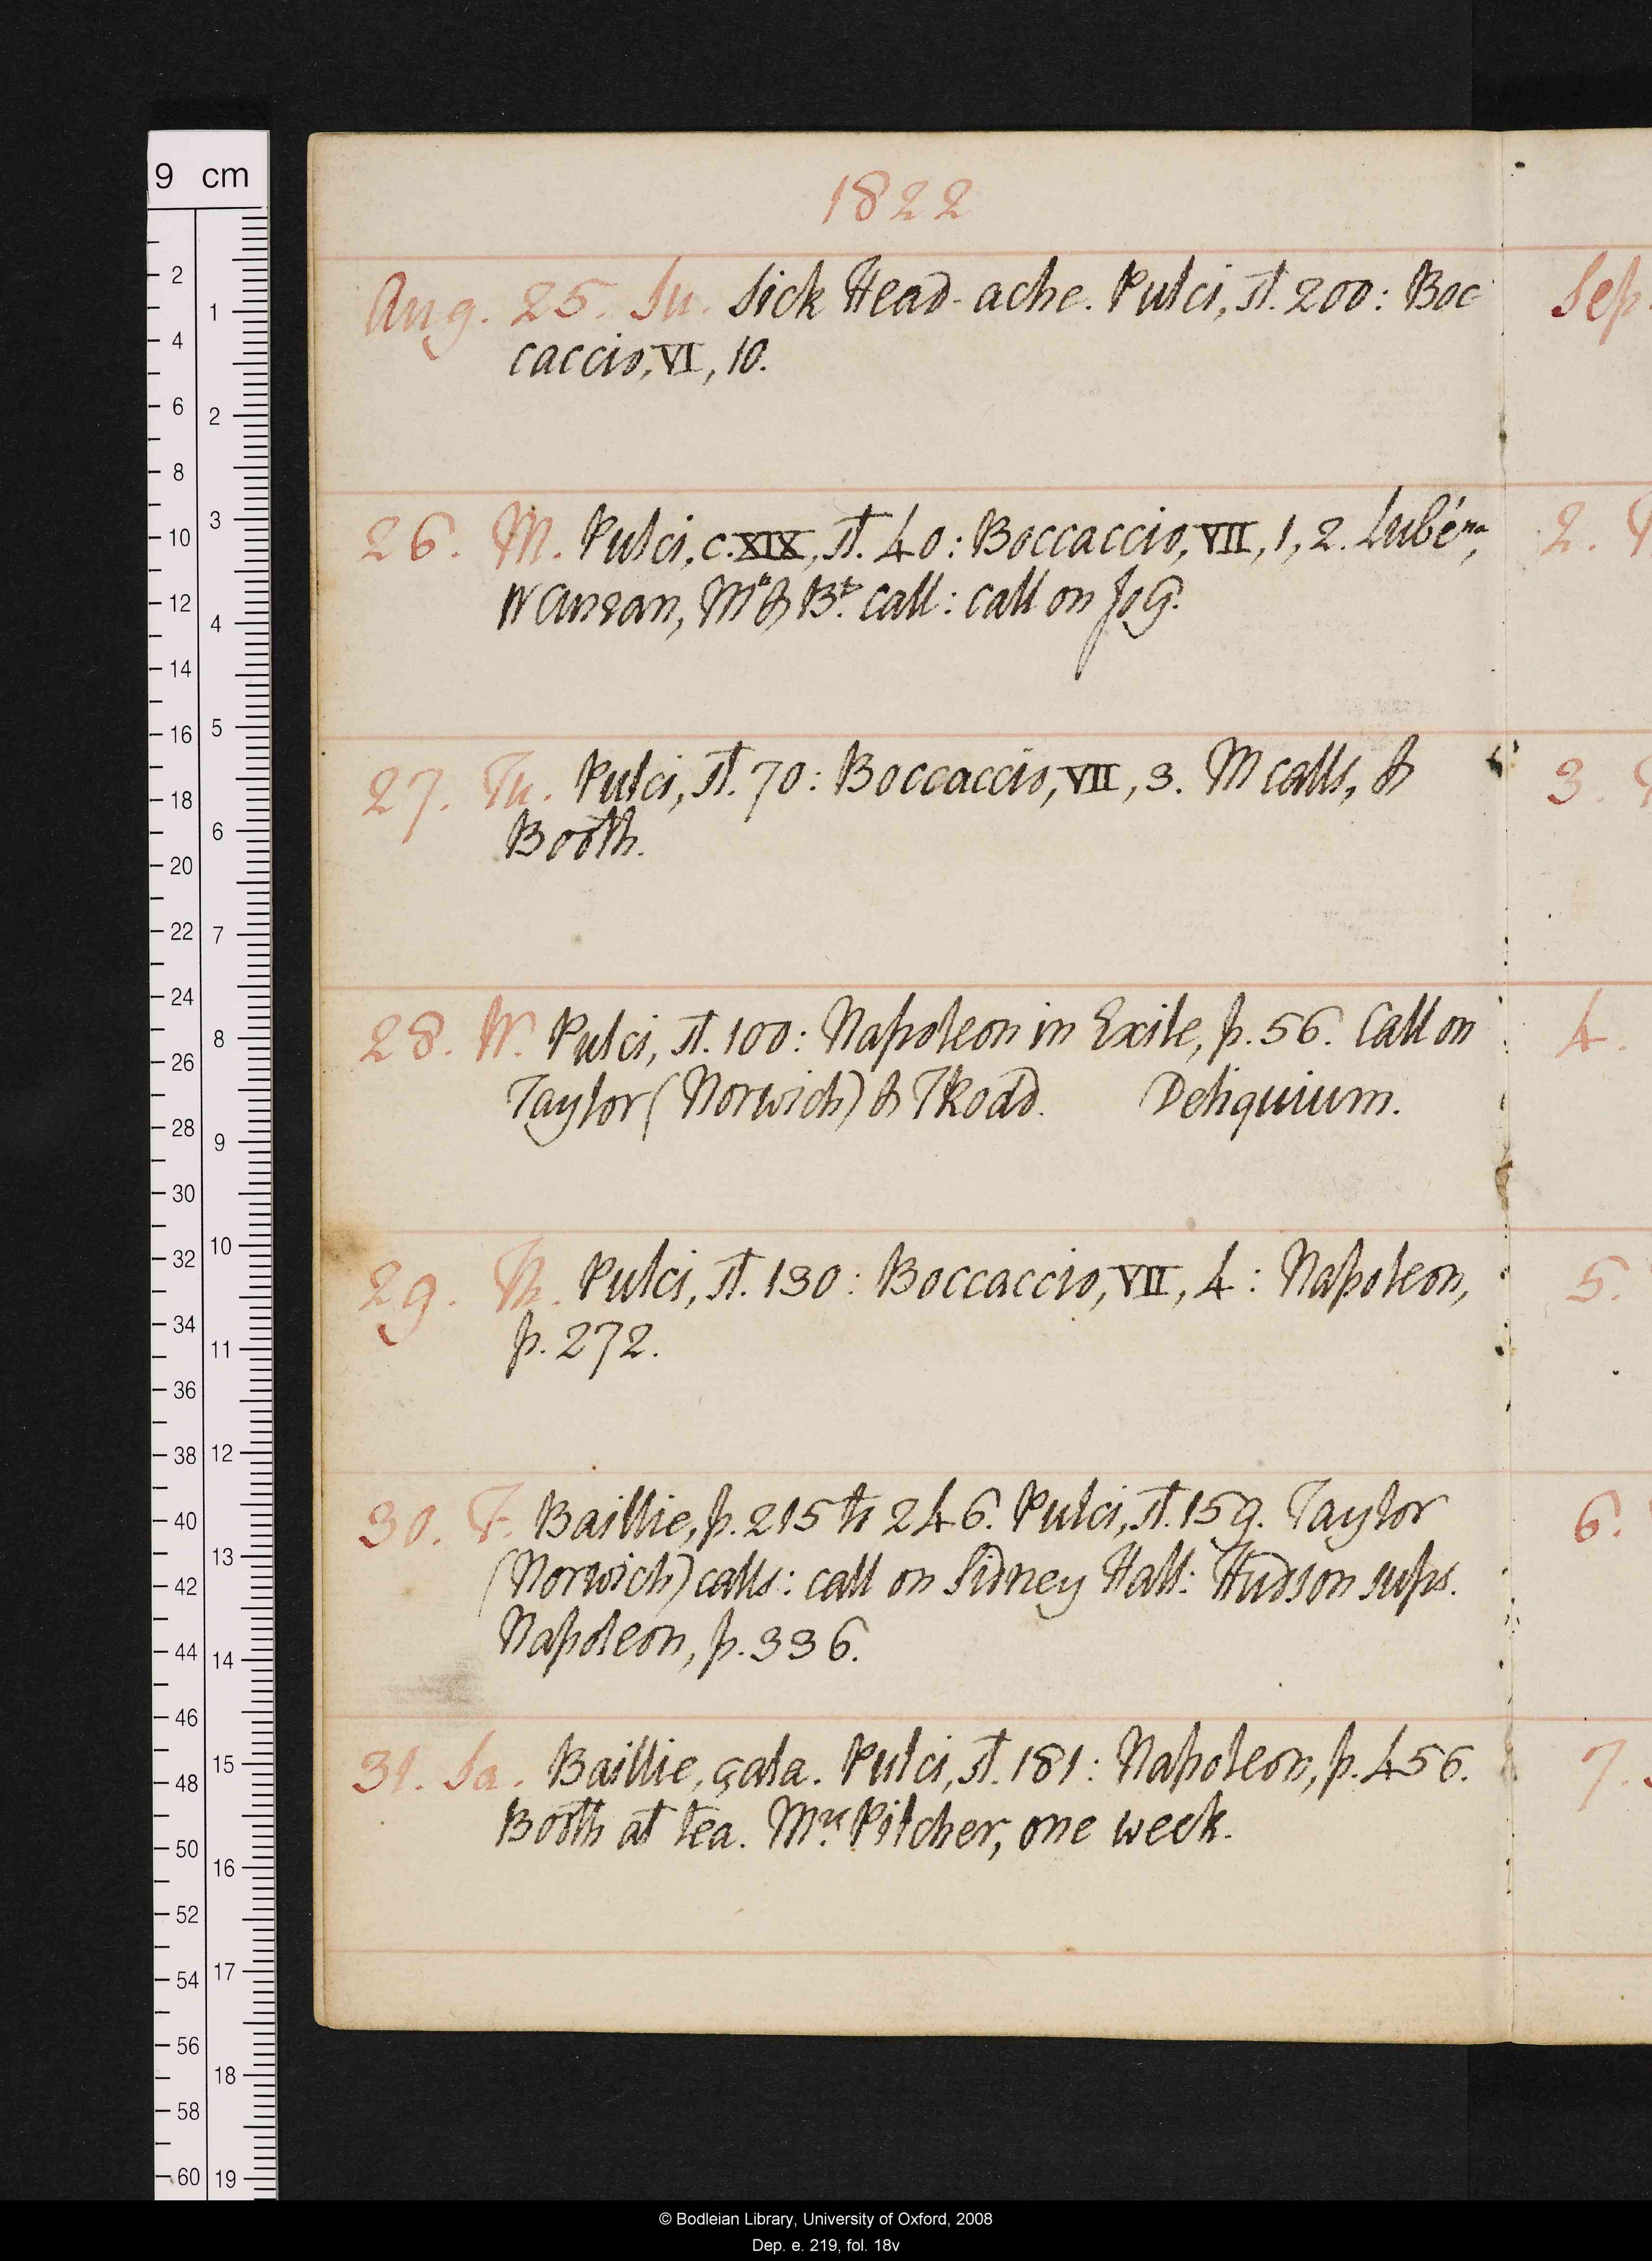 1822
Aug. 25. Su. Sick Head-ache. Pulci, st. 200: Boc-
caccio, VI, 10.
26. M. Pulci, c. XIX, st. 40: Boccaccio, VII, 1, 2. Lubé
W Curran, M & Bt. call: call on JoG.
27. Tu. Pulci, st. 70: Boccaccio, VII, 3. M calls, &
Booth.
28. W. Pulci, st. 100: Napoleon in Exile, p. 56. Call on
Taylor (Norwich) & TRoad. Deliquium.
29. Th. Pulci, st. 130: Boccaccio, VII, 4: Napoleon,
p. 272.
30. F. Baillie, p. 215 to 246. Pulci, st. 159. Taylor
(Norwich) calls: call on Sidney Hall: Hudson sups.
Napoleon, p. 336.
31. Sa. Baillie, çala. Pulci, st. 181: Napoleon, p. 456.
Booth at tea. Mrs Pilcher, one week.
Sep.
2.
3.
4.
5.
6.
7.
9 cm
2
4
6
8
10
12
14
16
18
20
22
24
26
28
30
32
34
36
38
40
42
44
46
48
50
52
54
56
58
60
1
2
3
4
5
6
7
8
9
10
11
12
13
14
15
16
17
18
19
© Bodleian Library, University of Oxford, 2008
Dep. e. 219, fol. 18v